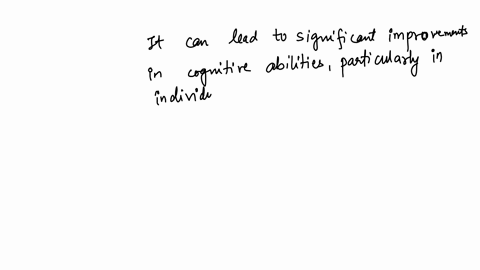 It can lead to significant improvements
in cognitive abilities, particularly in
individu